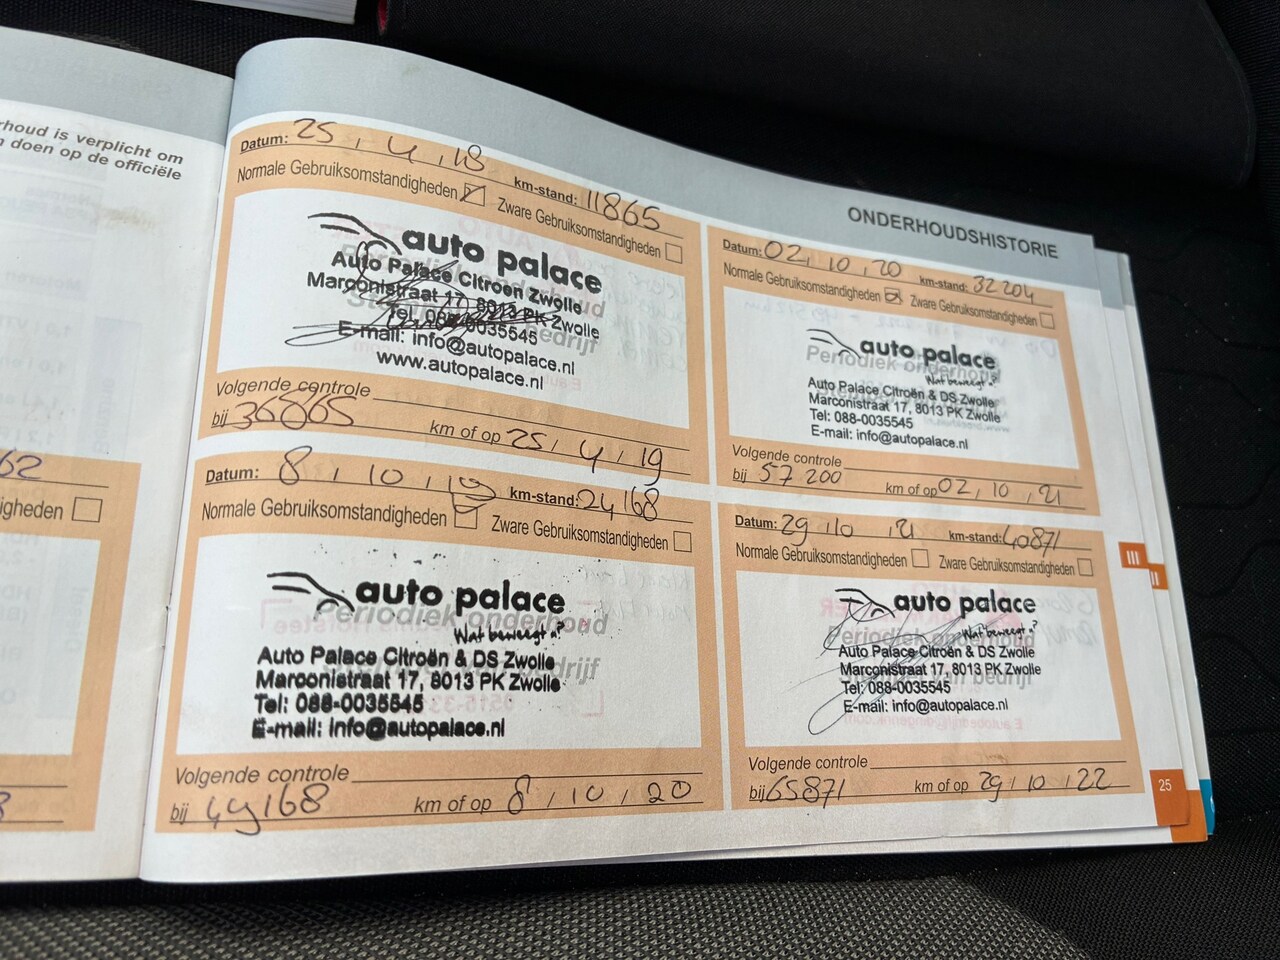 rhoud is verplicht om
n doen op de officiële
62
igheden
3
ONDERHOUDSHISTORIE
Datum: 25 , 4 , 18 km-stand: 11865
Normale Gebruiksomstandigheden Zware Gebruiksomstandigheden
auto palace
Periodiek onderhoud
Auto Palace Citroën Zwolle
Marconistraat 17, 8013 PK Zwolle
Tel: 088-0035545
E-mail: info@autopalace.nl
www.autopalace.nl
Volgende controle
bij 36865 km of op 25 , 4 , 19
Datum: 8 , 10 , 19 km-stand: 24168
Normale Gebruiksomstandigheden Zware Gebruiksomstandigheden
auto palace
Periodiek onderhoud
Wat beweegt u?
Auto Palace Citroën & DS Zwolle
Marconistraat 17, 8013 PK Zwolle
Tel: 088-0035545
E-mail: info@autopalace.nl
Volgende controle
bij 49168 km of op 8 , 10 , 20
Datum: 02 , 10 , 20 km-stand: 32204
Normale Gebruiksomstandigheden Zware Gebruiksomstandigheden
auto palace
Periodiek onderhoud
Wat beweegt u?
Auto Palace Citroën & DS Zwolle
Marconistraat 17, 8013 PK Zwolle
Tel: 088-0035545
E-mail: info@autopalace.nl
Volgende controle
bij 57200 km of op 02 , 10 , 21
Datum: 29 , 10 , 21 km-stand: 40871
Normale Gebruiksomstandigheden Zware Gebruiksomstandigheden
auto palace
Periodiek onderhoud
Wat beweegt u?
Auto Palace Citroën & DS Zwolle
Marconistraat 17, 8013 PK Zwolle
Tel: 088-0035545
E-mail: info@autopalace.nl
Volgende controle
bij 65871 km of op 29 , 10 , 22
III
II
25